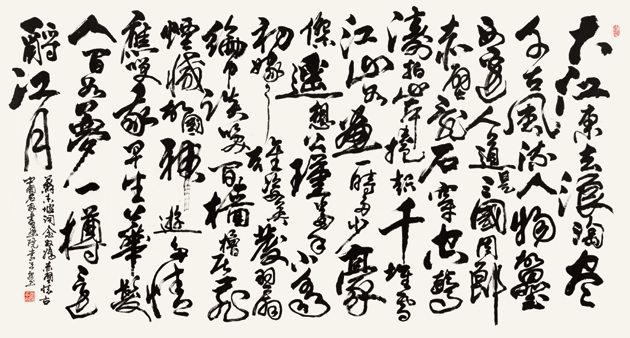 大江東去浪淘盡
千古風流人物故壘
西邊人道是三國周郎
赤壁亂石穿空驚
濤拍岸捲起千堆雪
江山如畫一時多少豪
傑遙想公瑾當年小喬
初嫁了雄姿英發羽扇
綸巾談笑間檣櫓灰飛
煙滅故國神遊多情
應笑我早生華髮
人間如夢一樽還
酹江月
蘇東坡詞念奴嬌赤壁懷古
中國名家書畫院